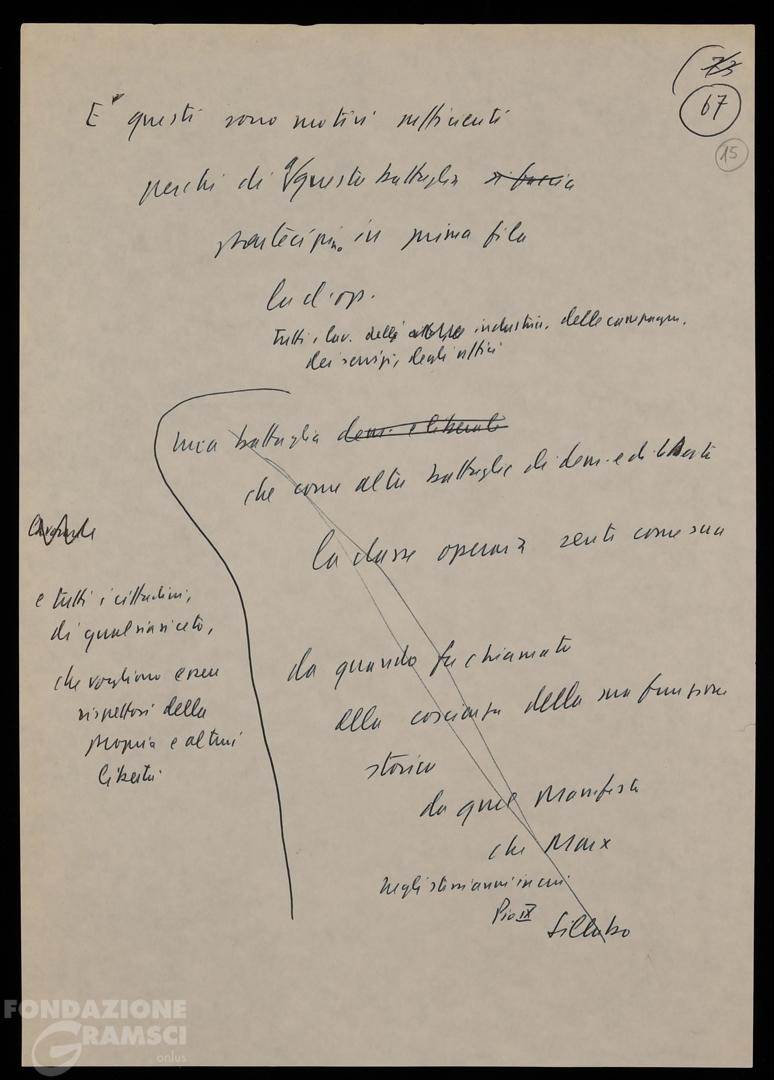 73
67
15
E questi sono motivi sufficienti
perché di questa battaglia si faccia
partecipino in prima fila
la cl. op.
tutti i lav. delle industrie, delle campagne,
dei servizi, degli uffici
una battaglia dem. e liberale
che come altre battaglie di dem. e di libertà
la classe operaia sente come sua
e tutti i cittadini,
di qualsiasi ceto,
che vogliono essere
rispettosi della
propria e altrui
libertà
da quando fu chiamata
alla coscienza della sua funzione
storica
da quel Manifesto
che Marx
negli stessi anni in cui
Pio IX
Sillabo
FONDAZIONE
GRAMSCI
onlus